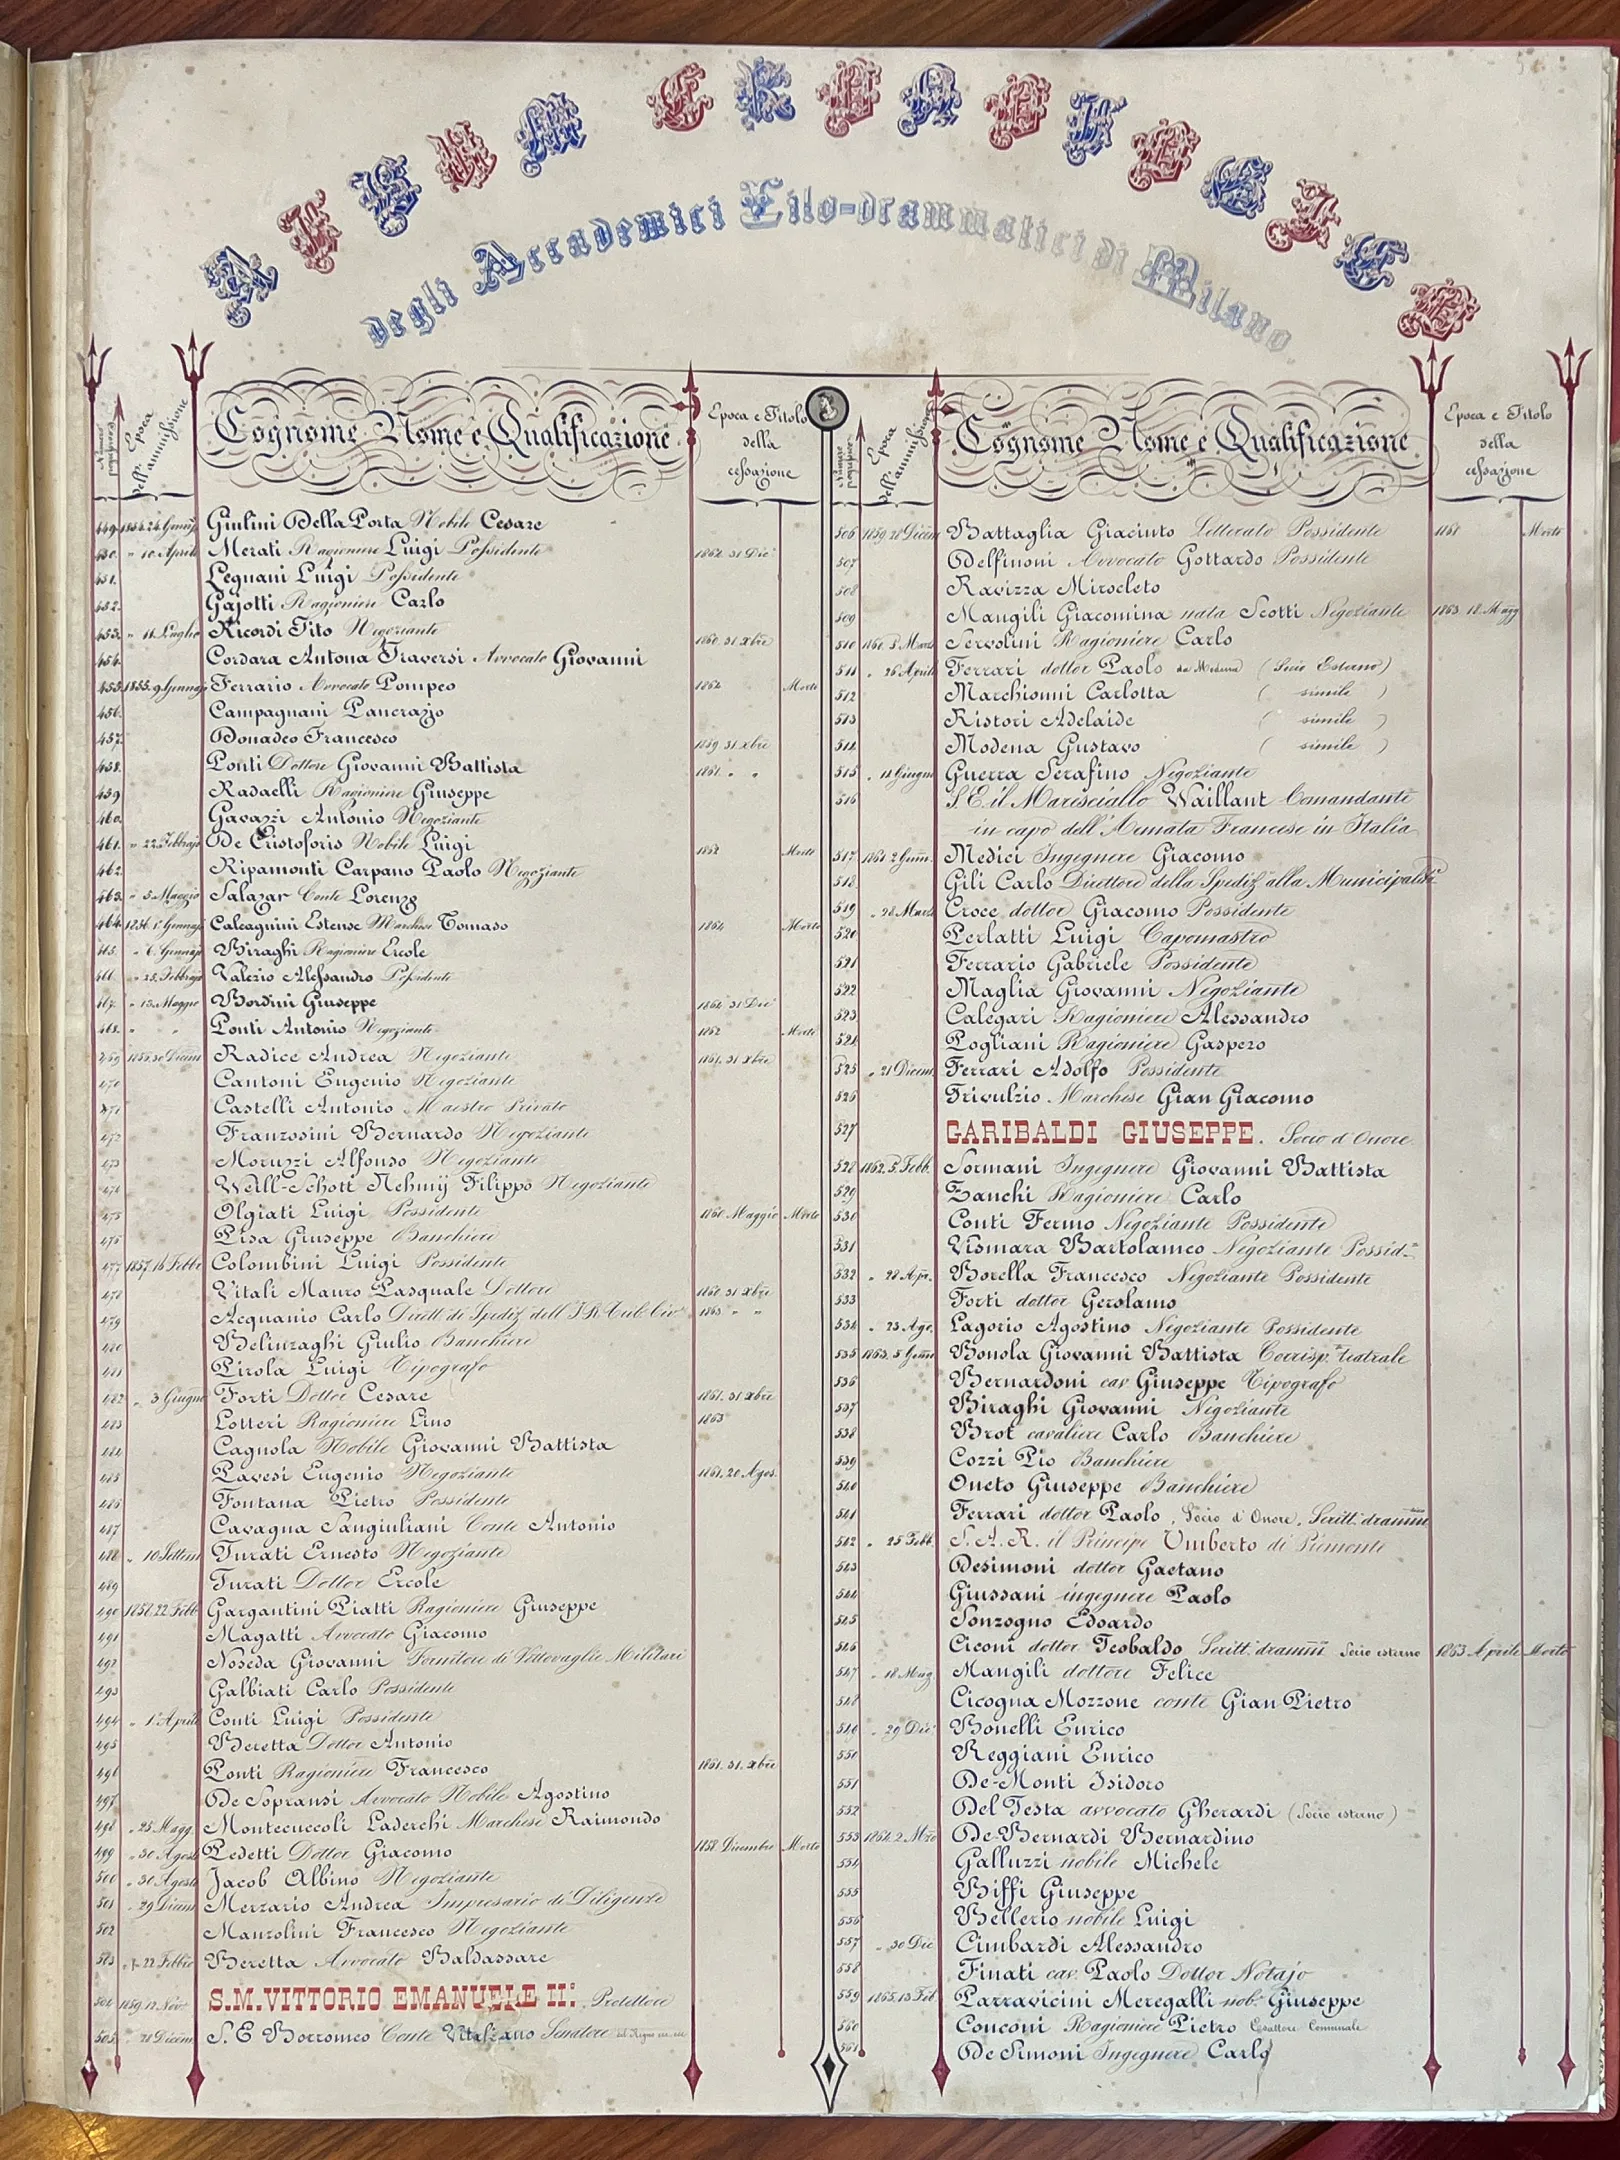 ALBUM CRONOLOGICO
degli Accademici Filo-drammatici di Milano.
Epoca dell'ammissione
Cognome Nome e Qualificazione
Epoca e Titolo della cessazione
449. 1854. 24. Genn. Giulini Della Porta Nobile Cesare
450. " 10 Aprile Merati Ragioniere Luigi Possidente 1862. 31 Dic.
451. Legnani Luigi Possidente
452. Gajotti Ragioniere Carlo
453. " 11. Luglio Ricordi Tito Negoziante 1860. 31 Xbre
454. Cordara Antona Traversi Avvocato Giovanni
455. 1855. 9. Gennajo Ferrario Avvocato Pompeo 1862 Morto
456. Campagnani Pancrazio
457. Donadeo Francesco 1859. 31. Xbre
458. Ponti Dottore Giovanni Battista 1861. " "
459. Radaelli Ragioniere Giuseppe
460. Gavazzi Antonio Negoziante
461. " 22. Febbrajo De Cristoforis Nobile Luigi 1862 Morto
462. Ripamonti Carpano Paolo Negoziante
463. " 5. Maggio Salazar Conte Lorenzo
464. 1856. 1° Gennajo Calcagnini Estense Marchese Tomaso 1862 Morto
465. " 6. Gennajo Biraghi Ragioniere Ercole
466. " 25. Febbrajo Valerio Alessandro Possidente
467. " 13. Maggio Bordini Giuseppe 1862. 31 Dic.
468. " " Ponti Antonio Negoziante 1862 Morto
469 1856. 30 Dicem Radice Andrea Negoziante 1861. 31 Xbre
470 Cantoni Eugenio Negoziante
471 Castelli Antonio Maestro Privato
472 Franzosini Bernardo Negoziante
473 Moruzzi Alfonso Negoziante
474 Weill-Schott Nehmij Filippo Negoziante
475 Olgiati Luigi Possidente 1860. Maggio Morto
476 Pisa Giuseppe Banchiere
477 1857. 16 Febb. Colombini Luigi Possidente
478 Vitali Mauro Pasquale Dottore 1860. 31 Xbre
479 Acquanio Carlo Dirett. di Spediz. dell'I. R. Trib. Civ. 1863 " "
480 Belinzaghi Giulio Banchiere
481 Pirola Luigi Tipografo
482 " 3 Giugno Forti Dottor Cesare 1861. 31 Xbre
483 Lotteri Ragioniere Lino 1863
484 Cagnola Nobile Giovanni Battista
485 Pavesi Eugenio Negoziante 1861. 20. Agos.
486 Fontana Pietro Possidente
487 Cavagna Sangiuliani Conte Antonio
488 " 10 Settem Turati Ernesto Negoziante
489 Turati Dottor Ercole
490 1858. 22 Febb. Gargantini Piatti Ragioniere Giuseppe
491 Magatti Avvocato Giacomo
492 Noseda Giovanni Fornitore di Vettovaglie Militari
493 Galbiati Carlo Possidente
494 " 1° Aprile Conti Luigi Possidente
495 Beretta Dottor Antonio
496 Ponti Ragioniere Francesco 1861. 31. Xbre
497 De Sopransi Avvocato Nobile Agostino
498 " 25 Magg. Montecuccoli Laderchi Marchese Raimondo
499 " 30 Agost. Pedetti Dottor Giacomo 1858 Dicembre Morto
500 " 30 Agosto Jacob Albino Negoziante
501 " 29 Dicem Merzario Andrea Impresario di Diligenze
502 Manzolini Francesco Negoziante
503 22 Febbr. Beretta Avvocato Baldassare
504 1859. 12. Nov. S. M. VITTORIO EMANUELE II: Protettore
505. " 28 Dicem. S. E Borromeo Conte Vitaliano Senatore del Regno ecc. ecc.
Numero progressivo
Epoca dell'ammissione
Cognome Nome e Qualificazione
Epoca e Titolo della cessazione
506 1859. 28 Dicem Battaglia Giacinto Letterato Possidente 1861 Morto
507 Delfinoni Avvocato Gottardo Possidente
508 Ravizza Mirocleto
509 Mangili Giacomina nata Scotti Negoziante 1863. 18. Magg
510 1860. 8. Marz. Servolini Ragioniere Carlo
511 " 26 Aprile Ferrari dottor Paolo da Modena (Socio Esterno)
512 Marchionni Carlotta ( simile )
513 Ristori Adelaide ( simile )
514 Modena Gustavo ( simile )
515 " 11 Giugno Guerra Serafino Negoziante
516 S. E. il Maresciallo Vaillant Comandante
in capo dell'Armata Francese in Italia
517 1861 2 Genn. Medici Ingegnere Giacomo
518 Gili Carlo Direttore della Spediz. alla Municipalità
519 " 28. Marz. Croce dottor Giacomo Possidente
520 Perlatti Luigi Capomastro
521 Ferrario Gabriele Possidente
522 Maglia Giovanni Negoziante
523 Calegari Ragioniere Alessandro
524 Pogliani Ragioniere Gaspero
525 " 21 Dicem. Ferrari Adolfo Possidente
526 Trivulzio Marchese Gian Giacomo
527 GARIBALDI GIUSEPPE. Socio d'Onore.
528 1862. 5. Febb. Sormani Ingegnere Giovanni Battista
529 Zanchi Ragioniere Carlo
530 Conti Fermo Negoziante Possidente
531 Vismara Bartolameo Negoziante Possid.
532 " 28 Apr. Borella Francesco Negoziante Possidente
533 Forti dottor Gerolamo
534 " 23 Ago. Lagorio Agostino Negoziante Possidente
535 1863. 5 Genn. Bonola Giovanni Battista Corrisp. teatrale
536 Bernardoni cav. Giuseppe Tipografo
537 Biraghi Giovanni Negoziante
538 Brot cavaliere Carlo Banchiere
539 Cozzi Pio Banchiere
540 Oneto Giuseppe Banchiere
541 Ferrari dottor Paolo, Socio d'Onore, Scritt. dramm.
542 " 25 Febb. S. A. R. il Principe Umberto di Piemonte
543 Desimoni dottor Gaetano
544 Giussani ingegnere Paolo
545 Sonzogno Edoardo
546 Ciconi dottor Teobaldo Scritt. dramm. Socio esterno 1863 Aprile Morto
547 " 18 Mag Mangili dottore Felice
548 Cicogna Mozzone conte Gian Pietro
549 " 29 Dic. Bonelli Enrico
550 Reggiani Enrico
551 De-Monti Isidoro
552 Del Testa avvocato Gherardi (Socio esterno)
553 1864. 2. Mzo De-Bernardi Bernardino
554 Galluzzi nobile Michele
555 Biffi Giuseppe
556 Bellerio nobile Luigi
557 " 30 Dic Cimbardi Alessandro
558 Finati cav. Paolo Dottor Notajo
559 1865. 13 Feb. Parravicini Meregalli nob. Giuseppe
560 Conconi Ragioniere Pietro Esattore Comunale
561 De Simoni Ingegnere Carlo